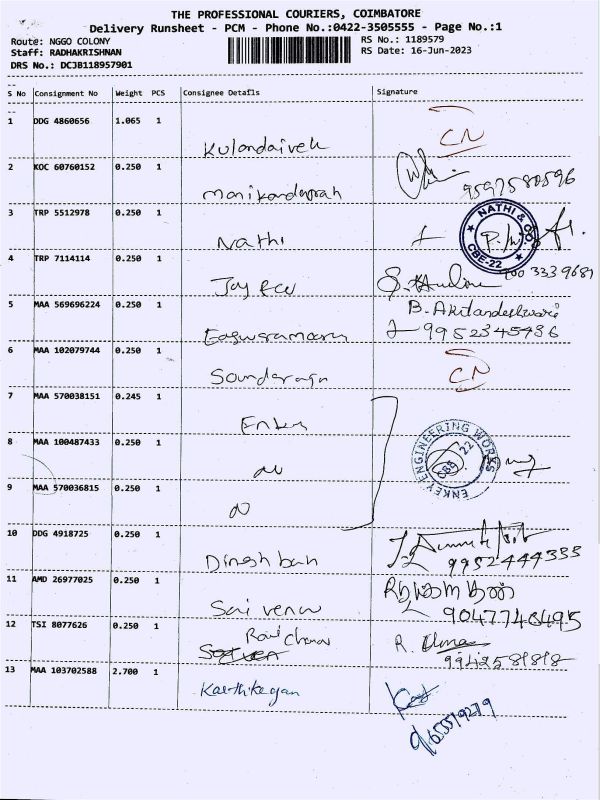 THE PROFESSIONAL COURIERS, COIMBATORE
Delivery Runsheet - PCM - Phone No.:0422-3505555 - Page No.:1
Route: NGGO COLONY RS No.: 1189579
Staff: RADHAKRISHNAN RS Date: 16-Jun-2023
DRS No.: DCJB118957901
S No Consignment No Weight PCS Consignee Details Signature
1 DDG 4860656 1.065 1 CN
Kulandaivelu
2 KOC 60760152 0.250 1
Manikandaprah 9597580596
3 TRP 5512978 0.250 1 NATHI & CO CBE-22
Nathi
4 TRP 7114114 0.250 1
5 MAA 569696224 0.250 1 B. Akilandeshwari
9952345486
6 MAA 102079744 0.250 1
Soundaraja CN
7 MAA 570038151 0.245 1
Enkey
8 MAA 100487433 0.250 1 ENKEY ENGINEERING WORKS CBE 22
9 MAA 570036815 0.250 1
10 DDG 4918725 0.250 1
Dinesh bah 9952444333
11 AMD 26977025 0.250 1
Sai venu 9047748495
12 TSI 8077626 0.250 1
Ravi R.
9942581818
13 MAA 103702588 2.700 1
Karthikeyan